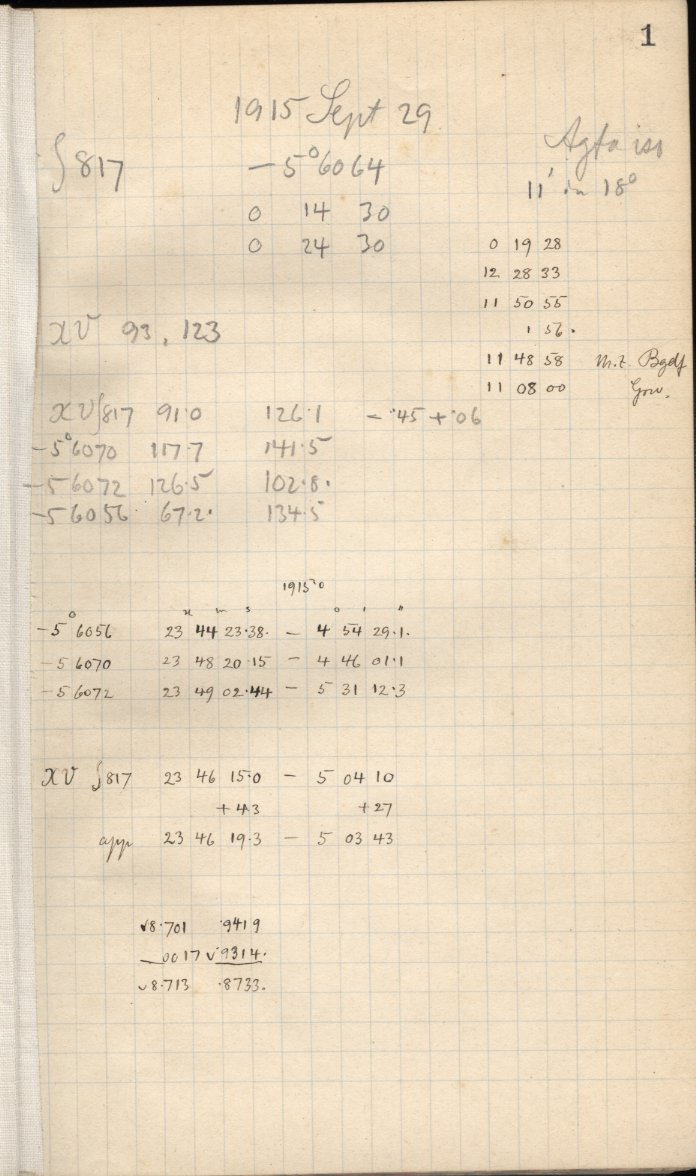 1
1915 Sept 29
∫817 − 5°6064
0 14 30
0 24 30
11' in 18°
0 19 28
12 28 33
11 50 55
1 56.
11 48 58 M.t. Bgdf
11 08 00
XV 93, 123
XV ∫817 91·0 126·1 − ·45 + ·06
−5°6070 117·7 141·5
−5 6072 126·5 102·8.
−5 6056 67·2. 134·5
1915·0
h m s ° ' "
−5° 6056 23 44 23·38. − 4 54 29·1.
−5 6070 23 48 20·15 − 4 46 01·1
−5 6072 23 49 02·44 − 5 31 12·3
XV ∫817 23 46 15·0 − 5 04 10
+ 4·3 + 27
app 23 46 19·3 − 5 03 43
√8·701 ·9419
0017 √·9314.
√8·713 ·8733.